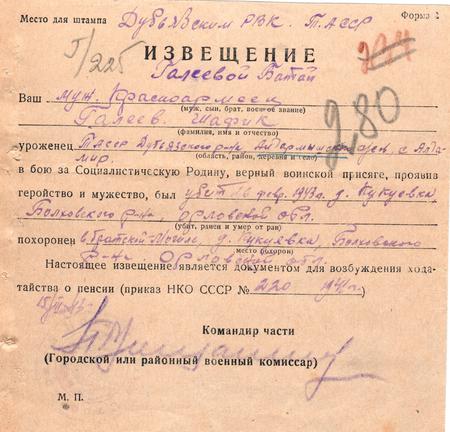 Место для штампа Дубьязским РВК. ТАССР
Форма 2
Г/225
ИЗВЕЩЕНИЕ
Галеевой
Ваш муж Красноармеец
(муж, сын, брат, военное звание)
Галеев Шафик
280
(фамилия, имя и отчество)
уроженец ТАССР Дубьязского р-на с. Алда-
мир.
(область, район, деревня и село)
в бою за Социалистическую Родину, верный воинской присяге, проявив
геройство и мужество, был убит 16 фев. 1943 г. д. Кукуевка
Болховского р-на, Орловской обл.
(убит, ранен и умер от ран)
похоронен в братской могиле, д. Кукуевка, Болховского
(место похорон)
р-на Орловской обл.
Настоящее извещение является документом для возбуждения хода-
тайства о пенсии (приказ НКО СССР № 220 1941 г.)
Командир части
(Городской или районный военный комиссар)
М. П.